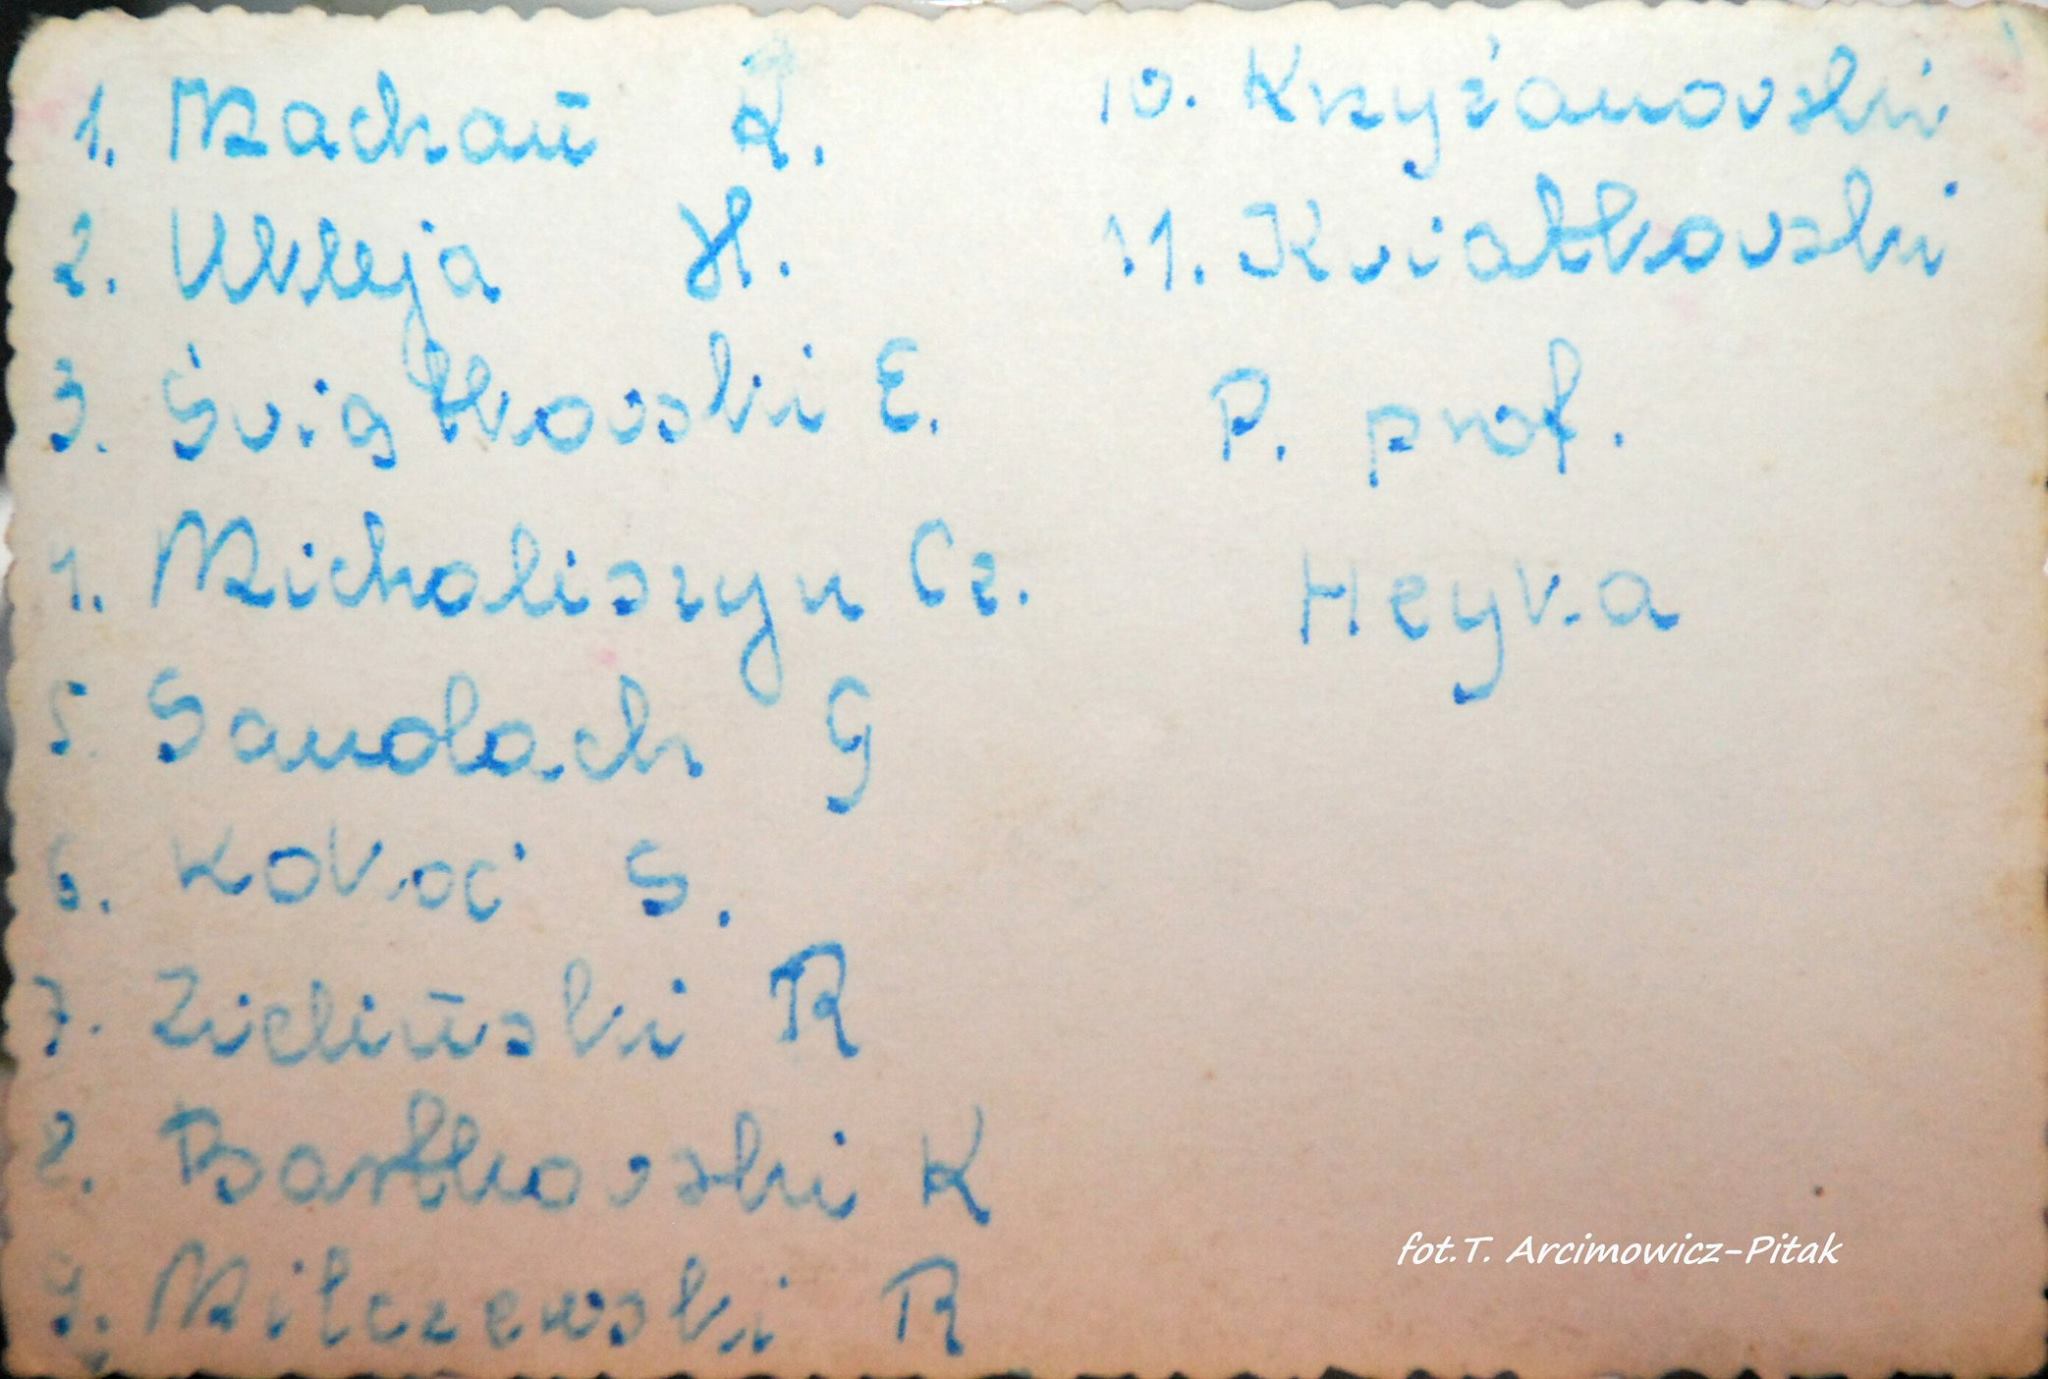 1. Machań R.
2. Ukleja H.
3. Świątkowski E.
4. Michaliszyn Cz.
5. Sandach G
6. Kokoć S.
7. Zieliński R
8. Bartkowski K
9. Milczewski R
10. Krzyżanowski
11. Kwiatkowski
P. prof.
Heyka
fot.T. Arcimowicz-Pitak